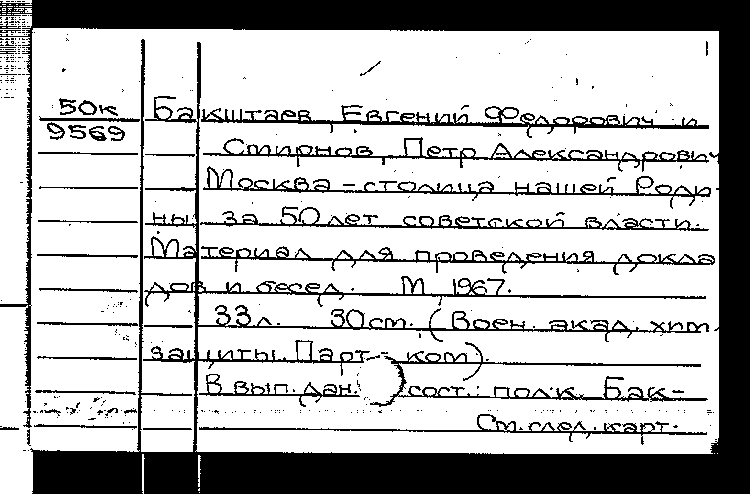 50к Бакштаев, Евгений Федорович и
9569
Смирнов, Петр Александрович
Москва - столица нашей Роди-
ны за 50 лет советской власти.
Материал для проведения докла
дов и бесед. М, 1967.
33л. 30 см. (Воен. акад. хим.
защиты. Парт. ком).
В вып. дан. сост.: полк. Бак-
См. след. карт.